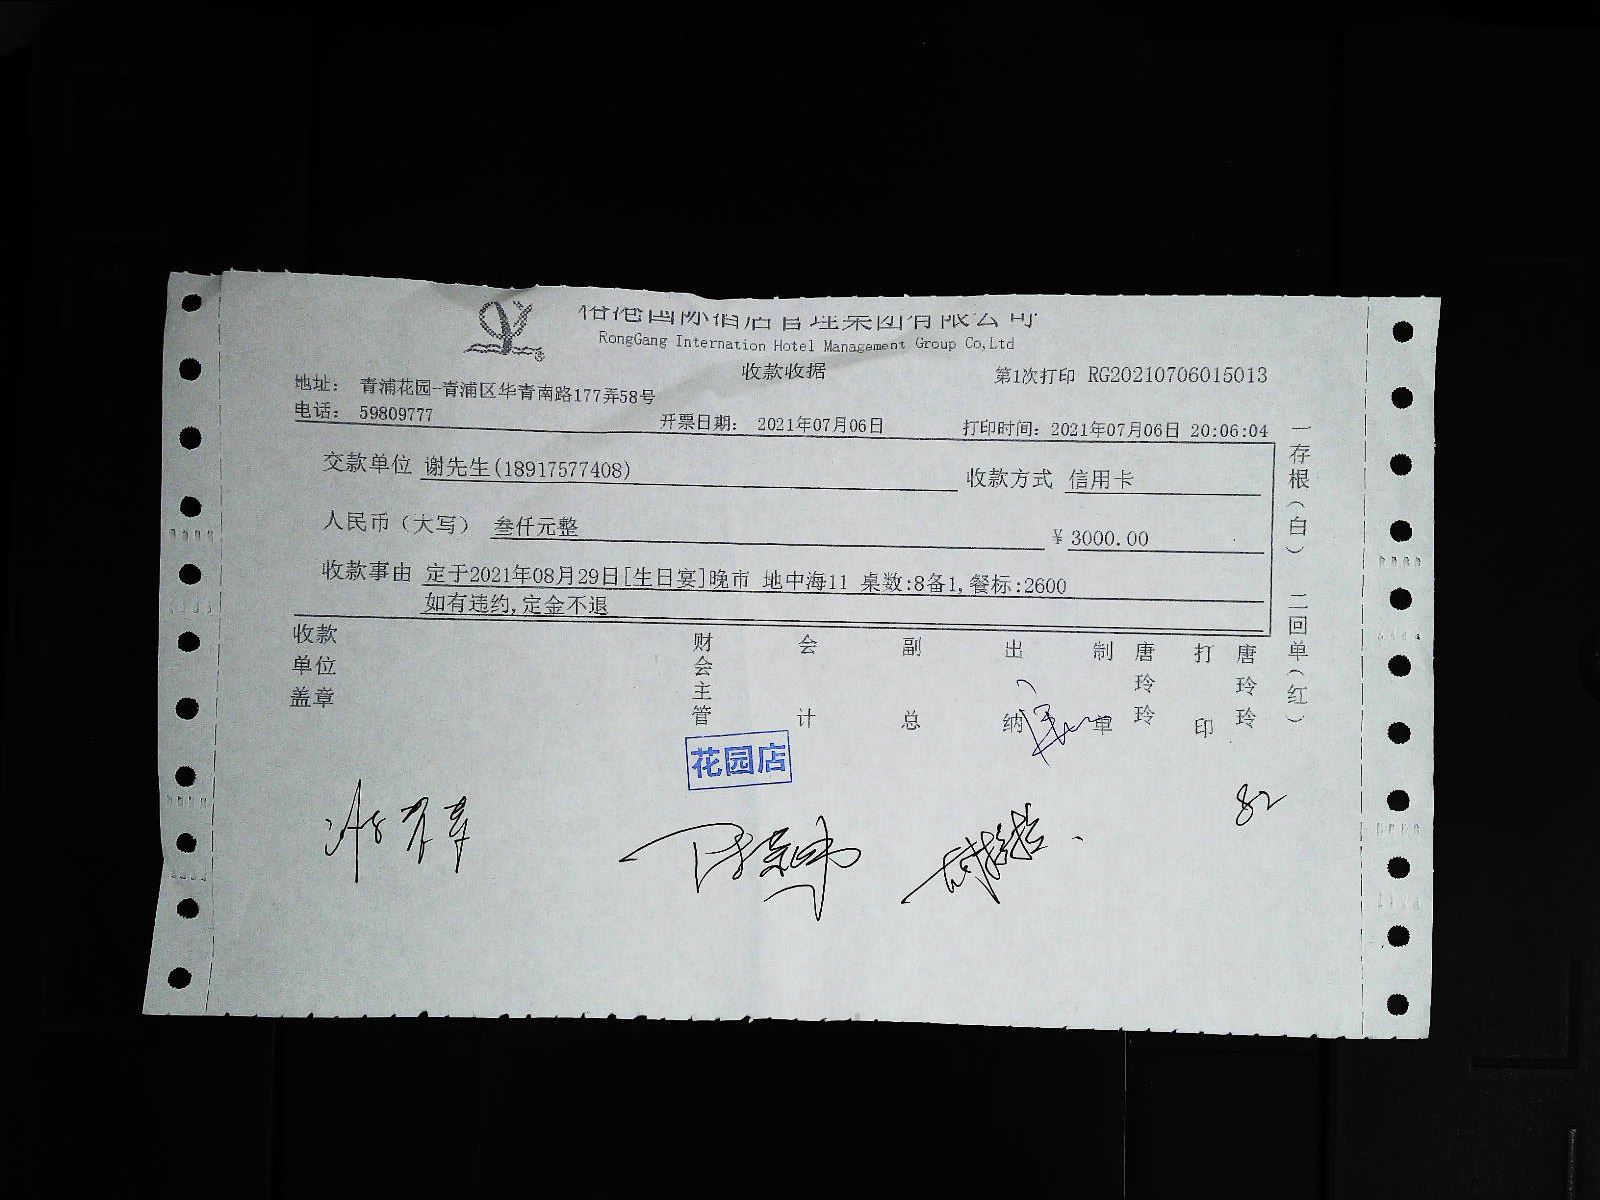 国际酒店管理集团有限公司
RongGang Internation Hotel Management Group Co,Ltd
收款收据
第1次打印 RG20210706015013
地址： 青浦花园-青浦区华青南路177弄58号
电话： 59809777
开票日期： 2021年07月06日
打印时间： 2021年07月06日 20:06:04
交款单位 谢先生(18917577408)
收款方式 信用卡
人民币（大写） 叁仟元整
￥3000.00
收款事由 定于2021年08月29日[生日宴]晚市 地中海11 桌数:8备1,餐标:2600
如有违约,定金不退
收款单位盖章
财会主管
会计
副总
出纳
制单 唐玲玲
打印 唐玲玲
一存根（白） 二回单（红）
花园店
82